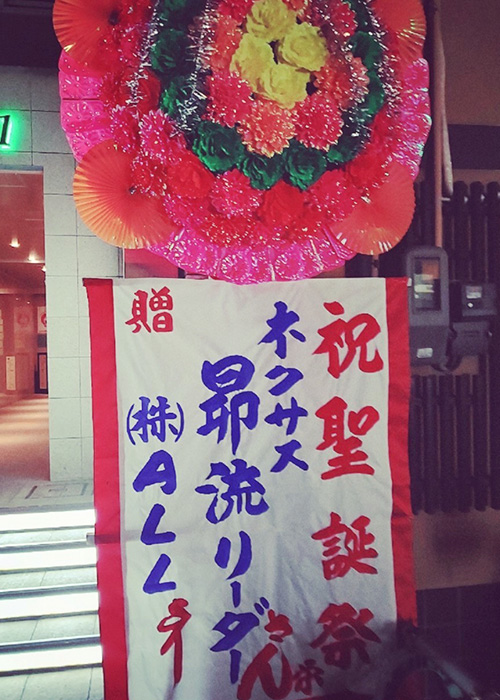 祝聖誕祭
ネクサス
昴流リーダーさん江
贈
(株)ALL